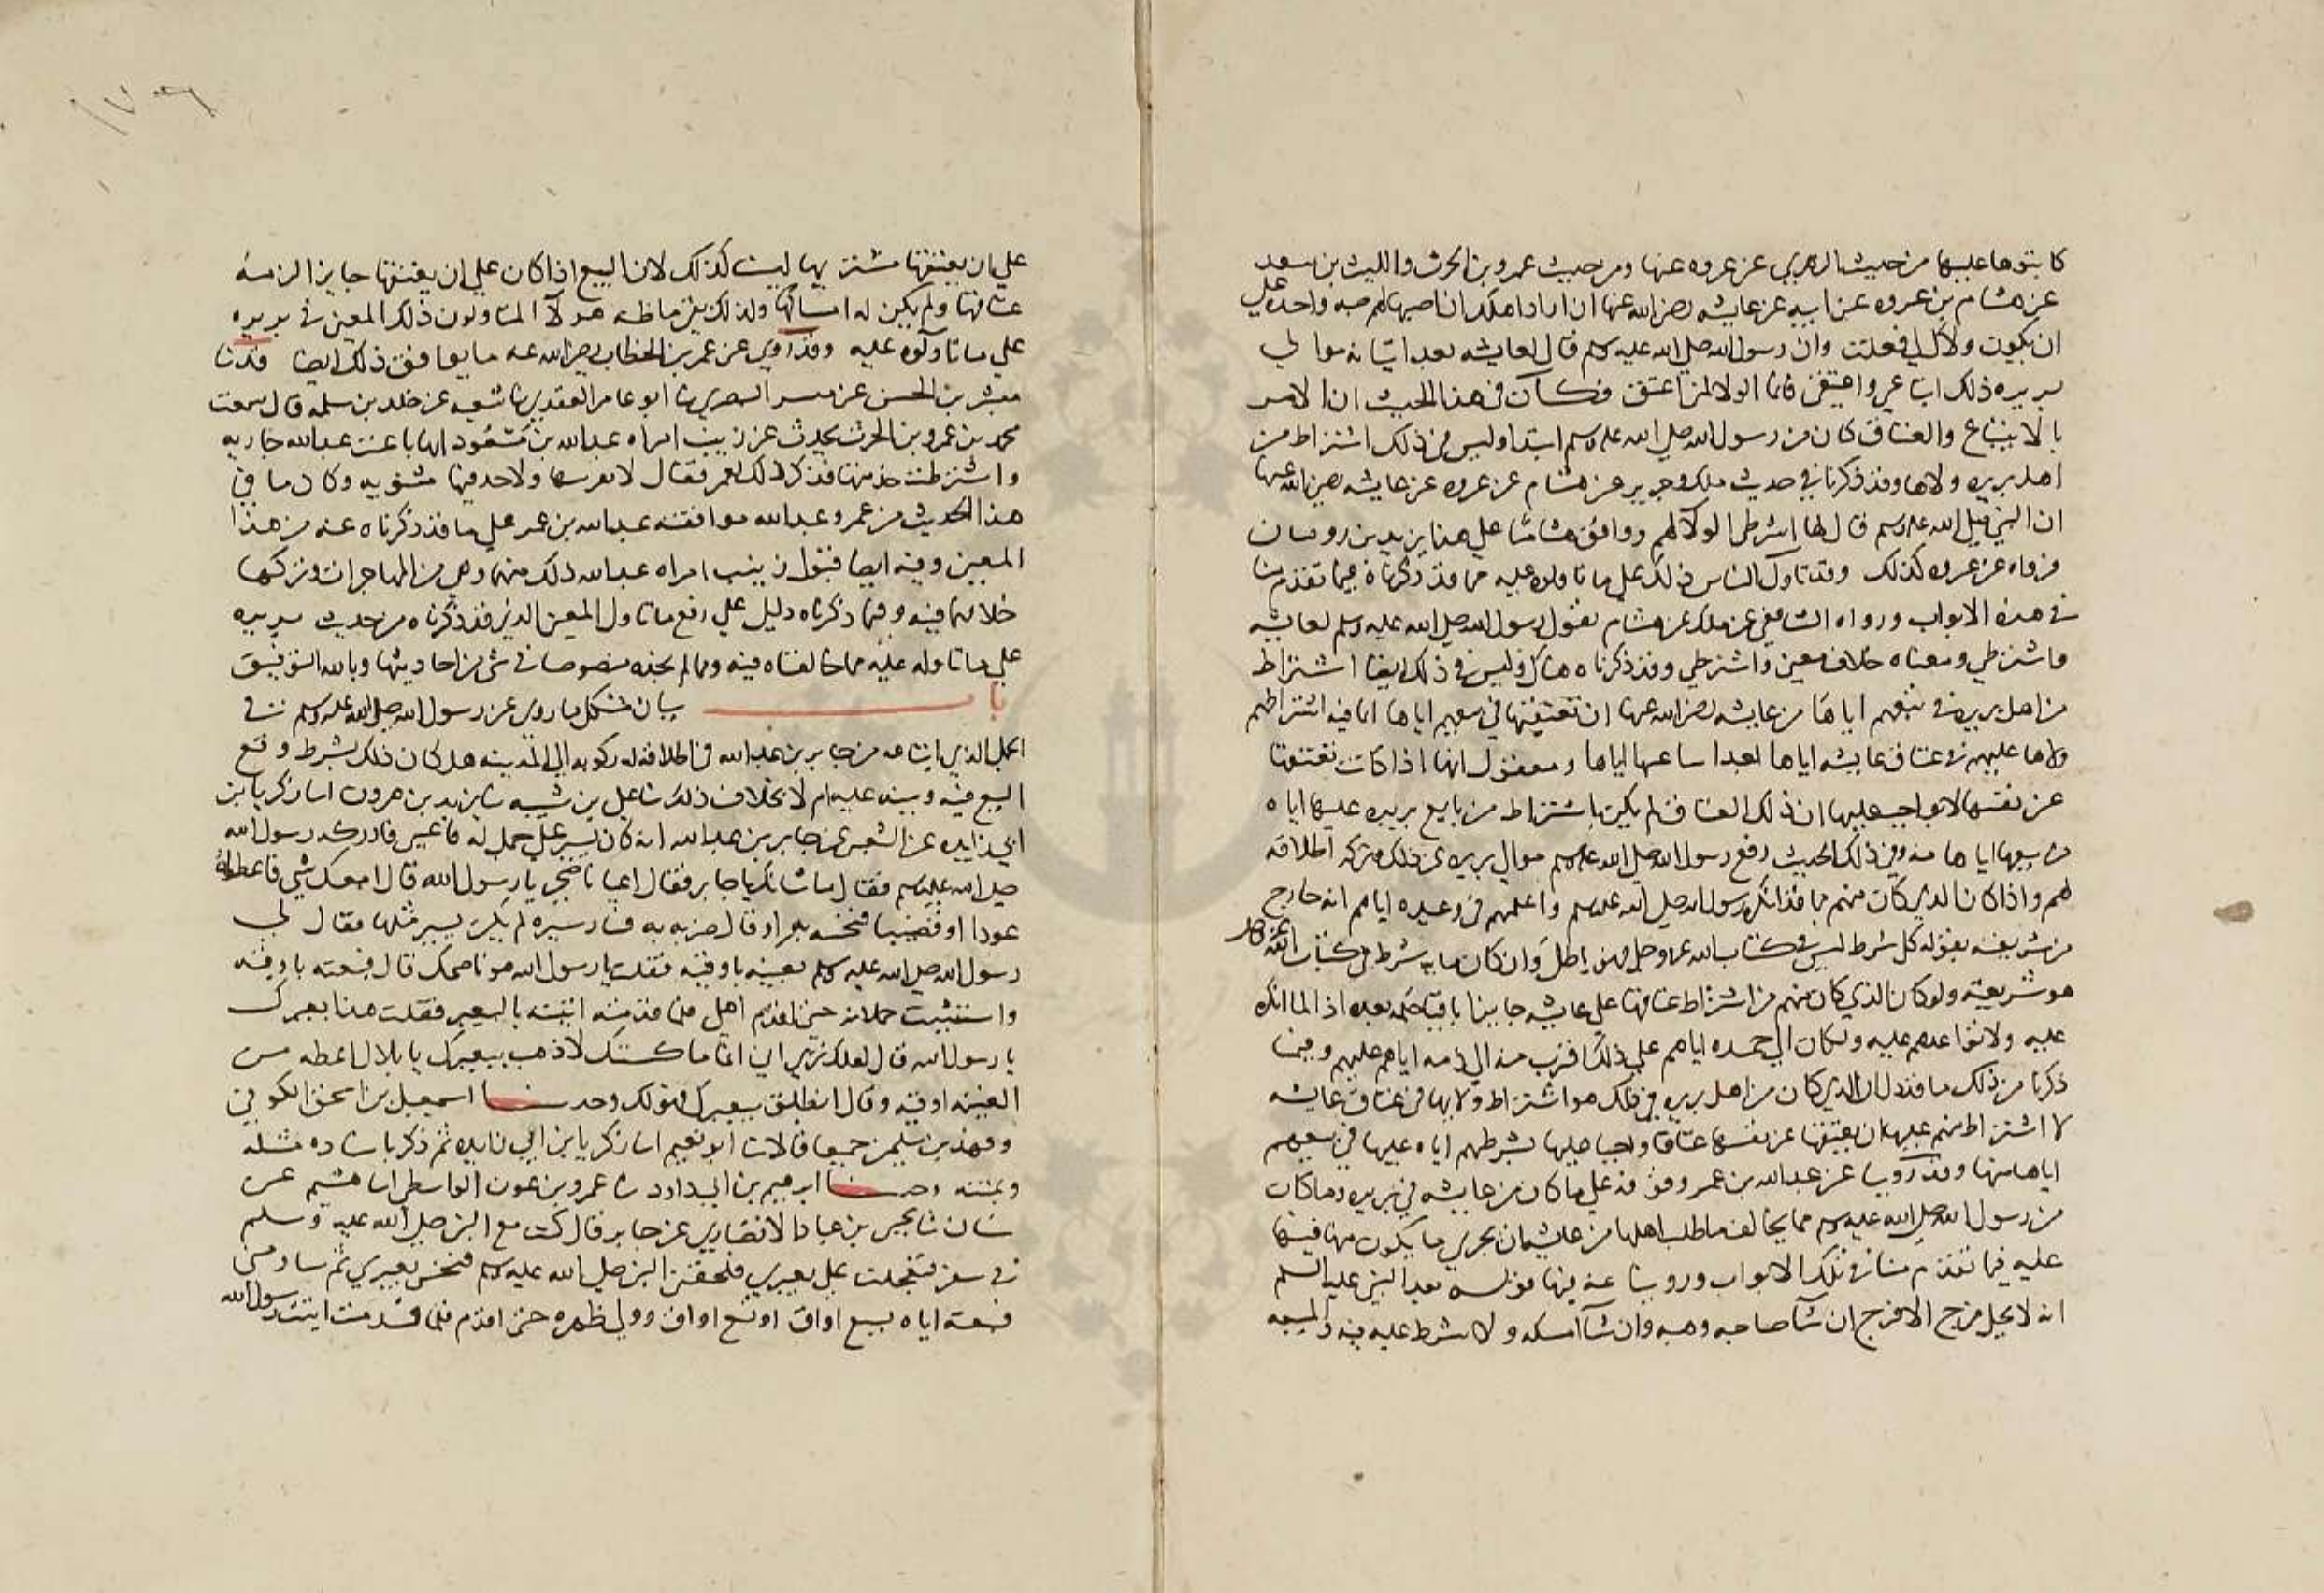 كاتبوها عليها من حديث الزهري عن عروه عنها ومن حديث عمرو بن الحرث والليث بن سعد
عن هشام بن عروه عن ابيه عن عايشه رضي الله عنها ان اراد اهلك ان اصبها لهم صبه واحده علي
ان يكون ولاك لي فعلت وان رسول الله صلي الله عليه وسلم قال لعايشه بعد اتيانه موالي
بريره ذلك ابتاعي واعتقي فانما الولا لمن اعتق فكان في هذا الحديث ان الامر
بالابتياع والعتاق كان من رسول الله صلي الله عليه وسلم ابتدا وليس في ذلك اشتراط من
اهل بريره ولاها وقد ذكرنا في حديث ملك وجرير عن هشام عن عروه عن عايشه رضي الله عنها
ان النبي صلي الله عليه وسلم قال لها اشترطي الولا لهم ووافق هشاما علي هذا يزيد بن رومان
فرواه عن عروه كذلك وقد تاول الناس ذلك علي ما تاولوه عليه مما قد ذكرناه فيما تقدم منا
في هذه الابواب ورواه الشافعي عن ملك عن هشام بقول رسول الله صلي الله عليه وسلم لعايشه
واشترطي ومعناه خلاف معني واشترطي وقد ذكرناه هناك وليس في ذلك ايضا اشتراط
من اهل بريره في بيعهم اياها من عايشه رضي الله عنها ان تعتقها في بيعهم اياها انما فيه اشتراطهم
ولاها عليهم في عتاق عايشه اياها بعد ابتياعها اياها ومعقول انها اذا كانت تعتقها
عن نفسها لا بواجب عليها ان ذلك العتاق لم يكن باشتراط من بايع بريره عليها اياه
في بيعها اياها منه وفي ذلك الحديث دفع رسول الله صلي الله عليه وسلم موالي بريره عن ذلك وتركه اطلاقه
لهم واذا كان الذي كان منهم مما قد انكره رسول الله صلي الله عليه وسلم واعلمهم في وعيده اياهم انه خارج
من شريعته بقوله كل شرط ليس في كتاب الله عز وجل فهو باطل وان كان مايه شرط في كتاب الله
هو شريعته ولو كان الذي كان منهم من اشتراط عتاقها علي عايشه جايزا باقيا حكمه بعده اذا لما انكره
عليه ولا تواعدهم عليه ولكان الي حمده اياهم علي ذلك اقرب منه الي ذمه اياهم عليهم وفيما
ذكرنا من ذلك ما قد دل ان الذي كان من اهل بريره في ذلك هو اشتراط ولايها في عتاق عايشه
لا اشتراط منهم عليها ان يعتقها عن نفسها عتاقا واجبا عليها بشرطهم اياه عليها في بيعهم
اياها منها وقد روينا عن عبد الله بن عمر وقوفه علي ما كان من عايشه في بريره وما كان
من رسول الله صلي الله عليه وسلم مما يخالف ما طلب اهلها من عايشه ان يجري ما يكون منها فيها
عليه فيما تقدم منا في تلك الابواب وروينا عنه فيها قوله بعد النبي عليه السلم
انه لا يحل فرج الا فرج ان شا صاحبه وهبه وان شا امسكه ولا شرط عليه فيه والمبيعه
علي ان يعتقها مشتريها ليست كذلك لان البيع اذا كان علي ان يعتقها جايزا لزمه
عتاقها ولم يكن له امساكها ولذلك نفي ما ظنه هولا المتاولون ذلك المعني في بريره
علي ما تاولوه عليه وقد روي عن عمر بن الخطاب رضي الله عنه ما يوافق ذلك ايضا
مبشر بن الحسن عن البصري ثنا ابو عامر العقدي ثنا شعبه عن خلد بن سلمه قال سمعت
محمد بن عمرو بن الحرث يحدث عن زينب امراه عبد الله بن مسعود انها باعت عبد الله جاريه
واشترطت خدمتها فذكر ذلك لعمر فقال لا تقربنها ولاحد فيها مثنويه وكان ما في
هذا الحديث من عمر وعبد الله موافقته عبد الله بن عمر علي ما قد ذكرناه عنه من هذا
المعني وفيه ايضا قبول زينب امراه عبد الله ذلك منهما وهي من المهاجرات وتركها
خلافهما فيه وفيما ذكرناه دليل علي دفع ما تاول المعني الذي قد ذكرناه من حديث بريره
علي ما تاوله عليه مما خالفناه فيه ومما لم نجده منصوصا في شي من احاديثها وبالله التوفيق
باب بيان مشكل ما روي عن رسول الله صلي الله عليه وسلم في
الجمل الذي ابتاعه من جابر بن عبد الله في اطلاقه له ركوبه الي المدينه هل كان ذلك بشرط وقع
البيع فيه وبينه عليه ام لا بخلاف ذلك ثنا علي بن شيبه ثنا يزيد بن هرون انبا زكريا بن
ابي زايده عن الشعبي عن جابر بن عبد الله انه كان يسير علي جمل له فاعيي فادركه رسول الله
صلي الله عليه وسلم فقال ما شانك يا جابر فقال اعيا ناضحي يا رسول الله قال امعك شي فاعطاه
عودا او قضيبا فنخسه به او قال ضربه به فسار سيره لم يكن يسير مثلها فقال لي
رسول الله صلي الله عليه وسلم بعنيه باوقيه فقلت يا رسول الله هو ناضحك قال فبعته باوقيه
واستثنيت حملانه حتي اقدم اهلي فلما قدمت اتيته بالبعير فقلت هذا بعيرك
يا رسول الله قال لعلك تري اني انما ماكستك لاذهب ببعيرك يا بلال اعطه من
العيبه اوقيه وقال انطلق ببعيرك فهو لك وحدثنا اسمعيل بن اسحق الكوفي
وفهد بن سليمن جميعا قالا ثنا ابو نعيم انبا زكريا بن ابي زايده ثم ذكر باسناده مثله
وبمتنه وحدثنا ابرهيم بن ابي داود ثنا عمرو بن عون الواسطي انبا هشيم عن
سيار ثنا يحيي بن عباد الانصاري عن جابر قال كنت مع النبي صلي الله عليه وسلم
في سفر فتعجلت علي بعيري فلحقني النبي صلي الله عليه وسلم فنخس بعيري ثم ساومني
فبعته اياه بسبع اواق او تسع اواق وولي ظهره حتي اقدم فلما قدمت اتيت رسول الله